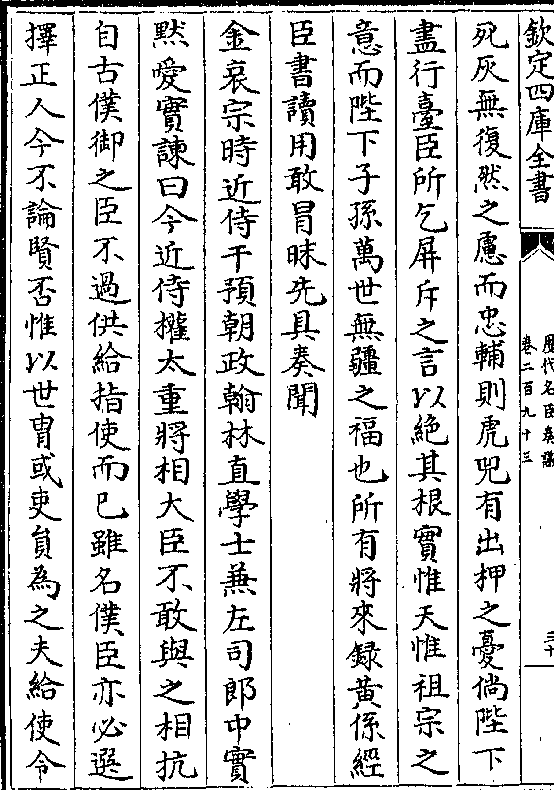 欽定四庫全書
歷代名臣奏議
卷二百九十三
三十
死灰無復然之慮而忠輔則虎兕有出柙之憂倘陛下
盡行臺臣所乞屏斥之言以絶其根實惟天惟祖宗之
意而陛下子孫萬世無疆之福也所有將來録黄係經
臣書讀用敢冒昧先具奏聞
金哀宗時近侍干預朝政翰林直學士兼左司郎中實
默愛實諫曰今近侍權太重將相大臣不敢與之相抗
自古僕御之臣不過供給指使而已雖名僕臣亦必選
擇正人今不論賢否惟以世胄或吏員為之夫給使令